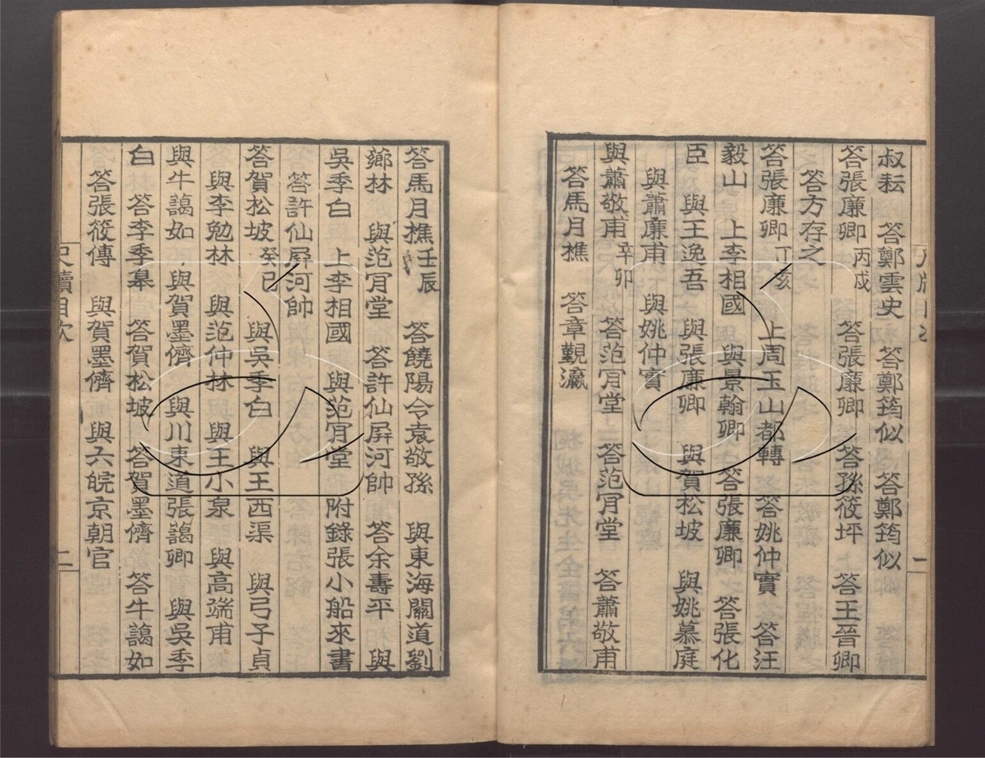 叔耘　答鄭雲史　答鄭筠似　答鄭筠似
答張廉卿丙戌　答張廉卿　答孫筱坪　答王晉卿
答方存之
答張廉卿丁亥　上周玉山都轉　答姚仲實　答汪
毅山　上李相國　與景翰卿　答張廉卿　答張化
臣　與王逸吾　與張廉卿　與賀松坡　與姚慕庭
與蕭廉甫　與姚仲實
與蕭敬甫辛卯　答范肎堂　答范肎堂　答蕭敬甫
答馬月樵　答章觐瀛
尺牘目次　一
答馬月樵壬辰　答饒陽令袁敬孫　與東海關道劉
薌林　與范肎堂　答許仙屏河帥　答余壽平　與
吳季白　上李相國　與范肎堂　附錄張小船來書
答許仙屏河帥
答賀松坡癸巳　與吳季白　與王西渠　與弓子貞
與李勉林　與范仲林　與王小泉　與高端甫
與牛藹如　與賀墨儕　與川東道張藹卿　與吳季
白　答李季皋　答賀松坡　答賀墨儕　答牛藹如
答張筱傳　與賀墨儕　與六皖京朝官
尺牘目次　二